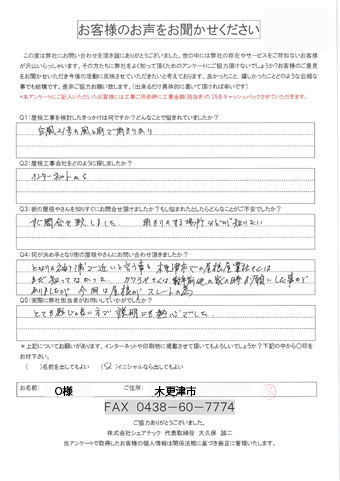 お客様のお声をお聞かせください
この度は弊社にお問い合わせを頂き誠にありがとうございました。世の中には弊社の存在やサービスをご存知ないお客様
が沢山いらっしゃいます。その方たちに弊社をよく知って頂くためのアンケートにご協力頂けないでしょうか?お客様のご意見
をお聞かせいただき今後の活動に反映させていただきたいと考えております。良かったこと、嬉しかったことどのような些細な
事でも結構です。是非ご協力お願い致します。(出来るだけ具体的に書いて頂ければ幸いです)
*本アンケートにご記入いただいたお客様には工事ご用命時に工事金額(税抜き)の2%をキャッシュバックさせていただきます。
Q1:屋根工事を検討したきっかけは何ですか?どんなことで悩まれていましたか?
台風21号の風と雨で雨もりあり
Q2:屋根工事会社をどのように探しましたか?
インターネットから
Q3:街の屋根やさんを知りすぐにお問合せ頂けましたか?もし悩まれたとしたらどんなことがご不安でしたか?
すぐ問合せ致しました。 雨もりのする場所などが知りたい
Q4:何が決め手となり街の屋根やさんにお問い合わせ頂きましたか?
となりの袖ケ浦で近いと言う事と 木更津市での屋根屋業社さんは
まだ知ってなかった。カワラやさんは 他の家の時お願いした事が
ありましたが 今回は屋根がスレートの為
Q5:実際に弊社担当者がお伺いしていかがでしたか?
とても感じの良い方で説明にも熱心でした。
*上記についてお伺い致します。インターネットや印刷物に掲載させて頂いてもよろしいでしょうか?下記の中から〇印を
お付下さい。
( )名前を出してもよい (〇)イニシャルなら出してもよい
お名前: O様 ご住所: 木更津市
FAX 0438-60-7774
ご協力ありがとうございました。
株式会社シェアテック 代表取締役 大久保 誠二
当アンケートで取得したお客様の個人情報は関係法規に基づき厳正に管理いたします。